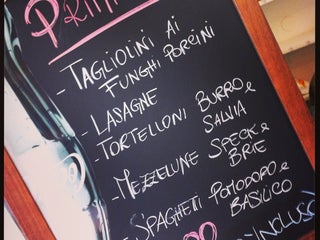 PRIMI
- TAGLIOLINI AI
FUNGHI PORCINI
- LASAGNE
- TORTELLONI BURRO e
SALVIA
- MEZZELUNE SPECK e
BRIE
- SPAGHETI POMODORO e
BASILICO
INCLUSO